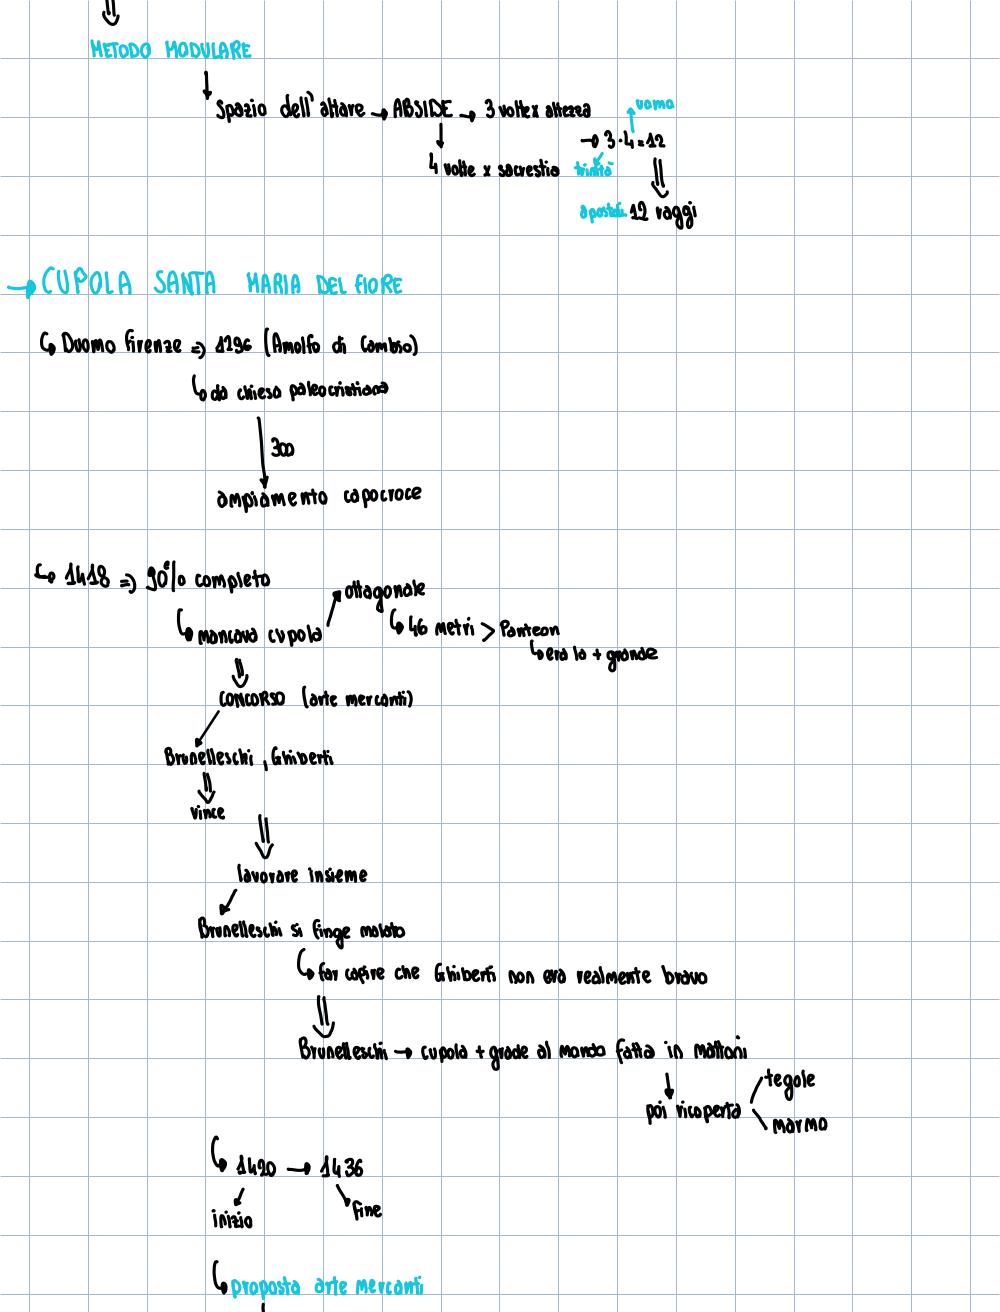 METODO MODULARE
Spazio dell'altare → ABSIDE → 3 volte x altezza
uomo
→ 3·4=12
4 volte x sacrestia trinità
apostoli 12 raggi
→ CUPOLA SANTA MARIA DEL FIORE
Duomo Firenze => 1296 (Arnolfo di Cambio)
da chiesa paleocristiana
300
ampiamento capocroce
1418 => 90% completo
ottagonale
mancava cupola
46 metri > Panteon
era la + grande
CONCORSO (arte mercanti)
Brunelleschi, Ghiberti
vince
lavorare insieme
Brunelleschi si finge malato
far capire che Ghiberti non era realmente bravo
Brunelleschi → cupola + grade al mondo fatta in mattoni
tegole
poi ricoperta
marmo
1420 → 1436
inizio
fine
proposta arte mercanti